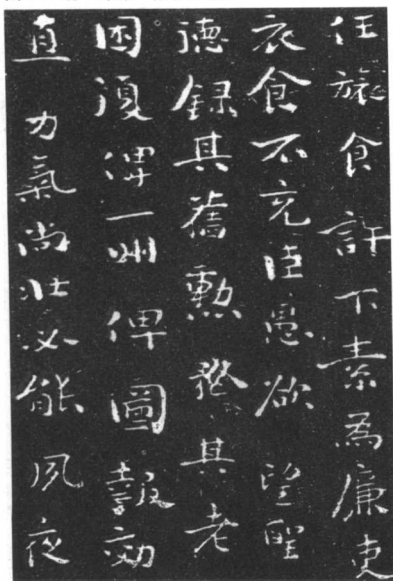 任旅食許下素為廉吏
衣食不充臣愚欲望聖
徳録其舊勲矜其老
困復俾一州俾圖報効
直力氣尚壯必能夙夜